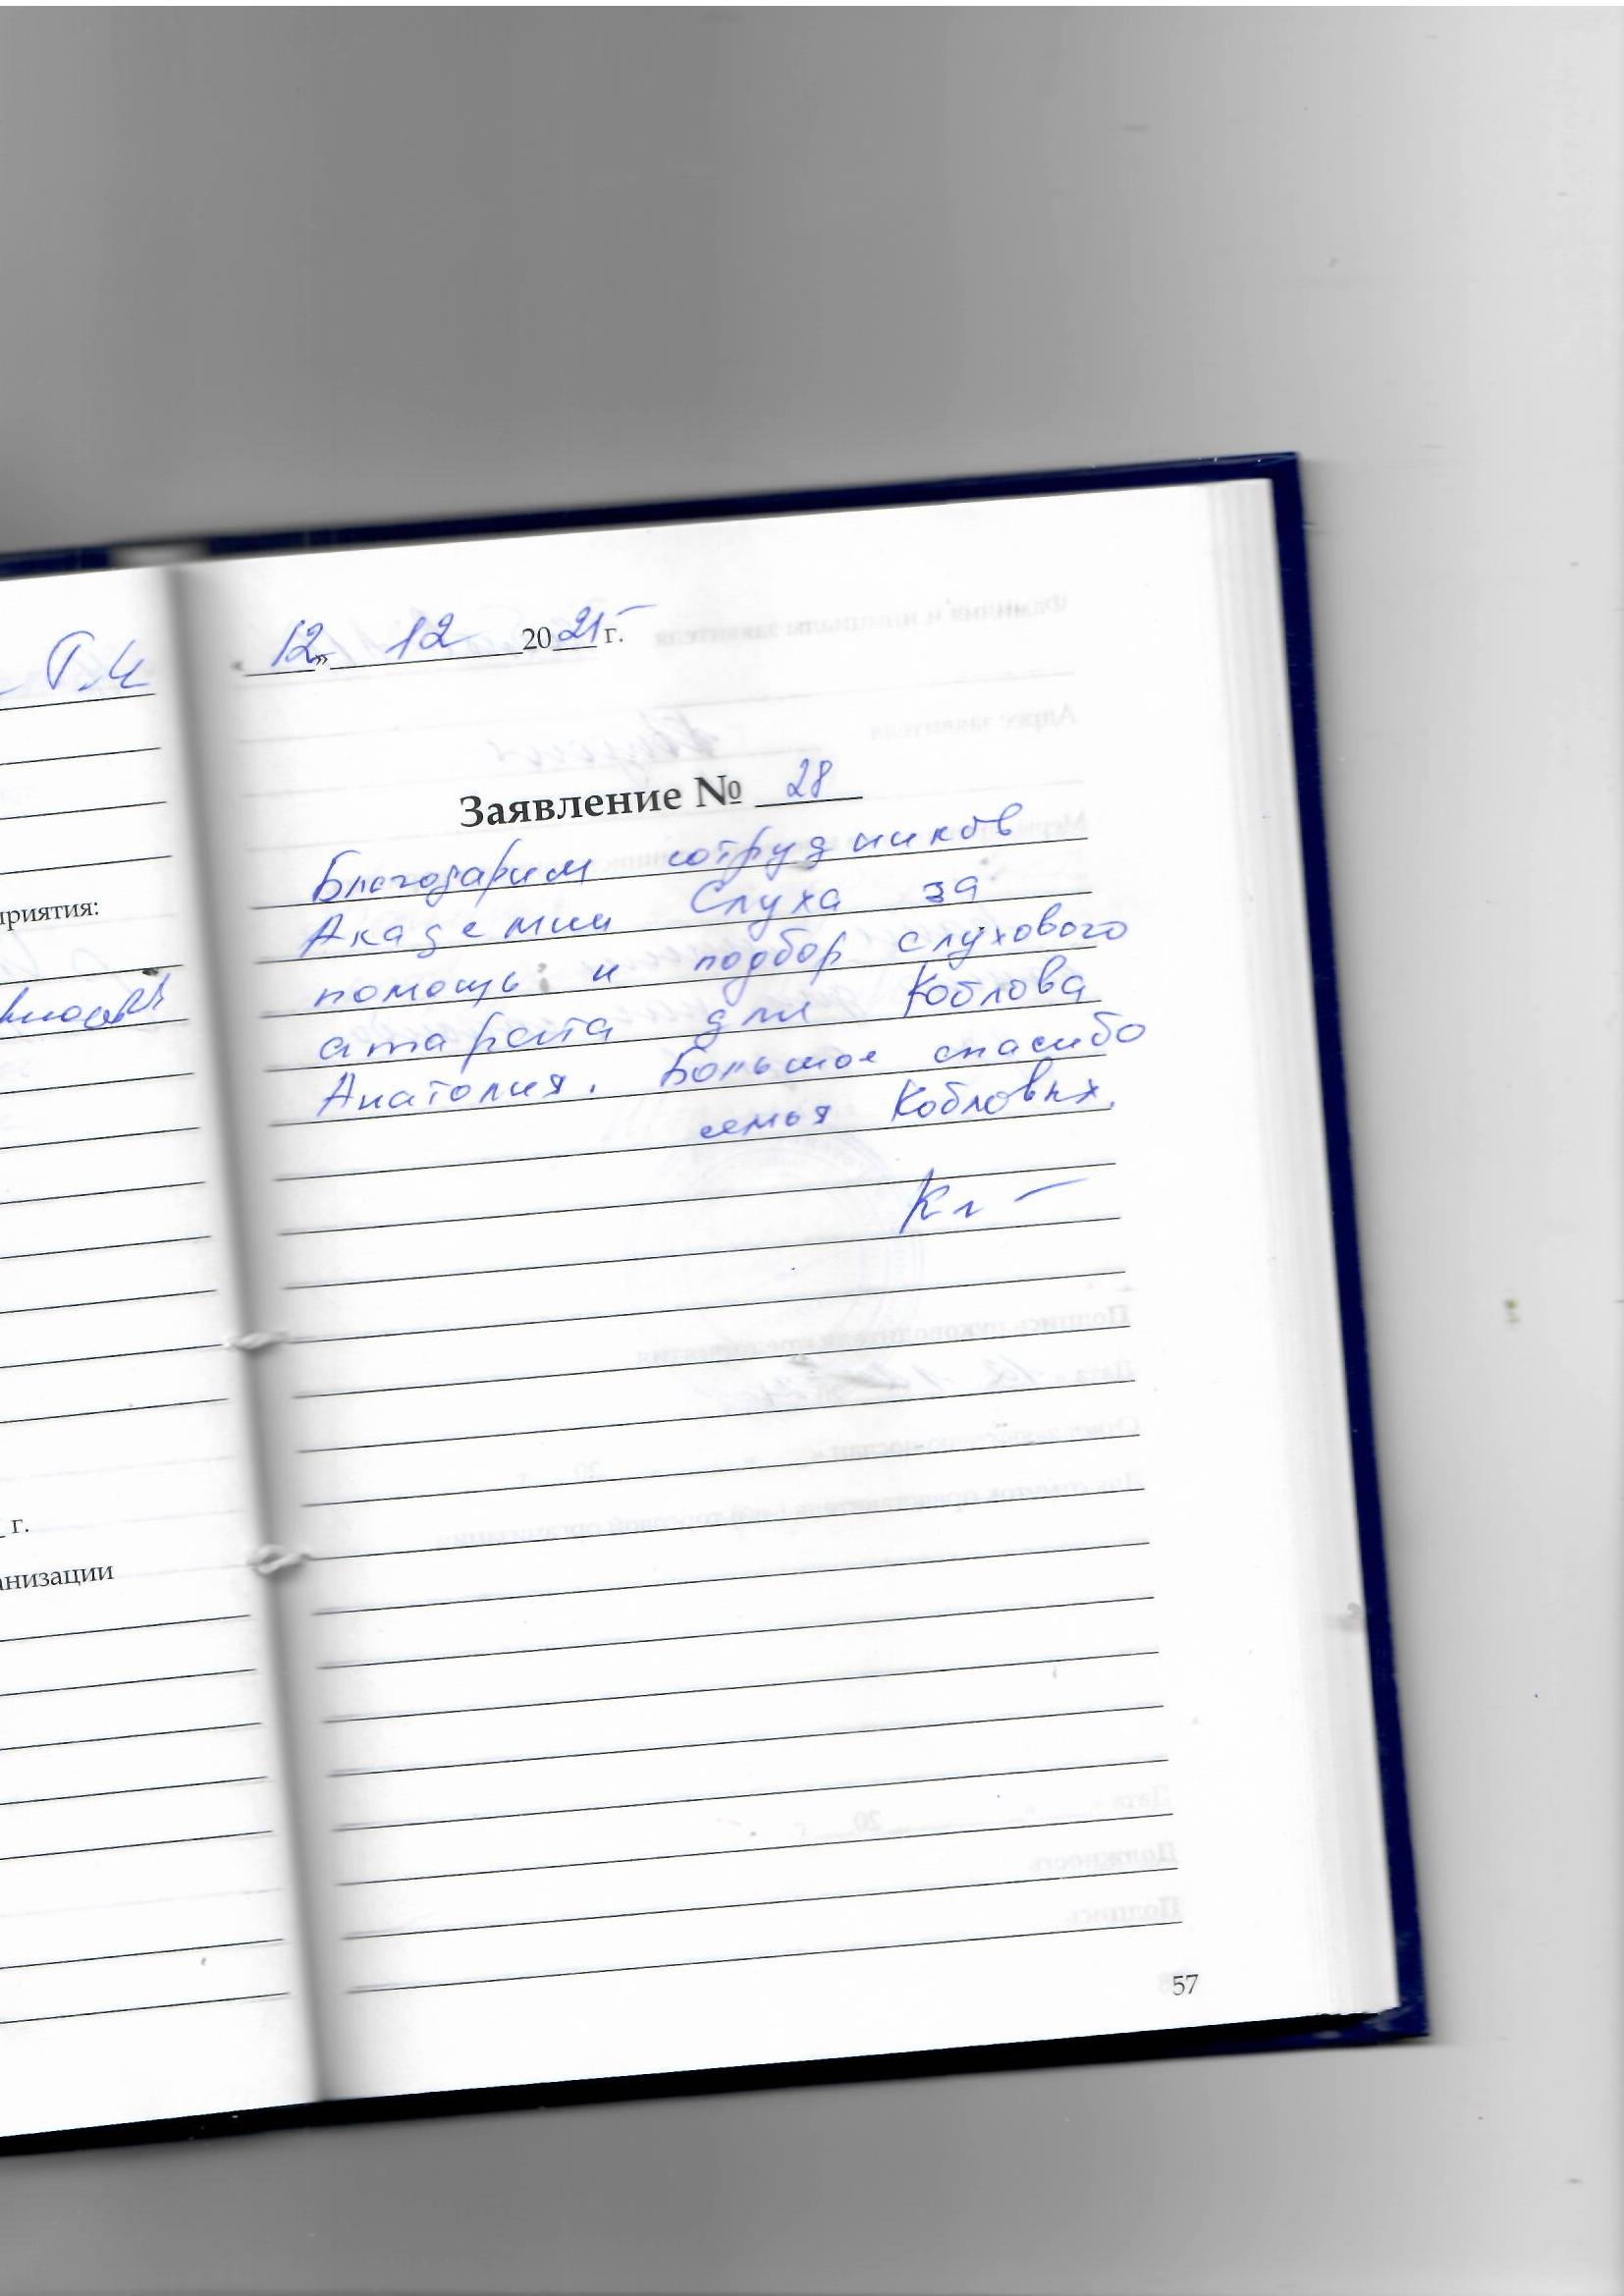 Т.И
приятия:
г.
анизации
«12» 12 2021 г.
Заявление № 28
Благодарим сотрудников
Академии Слуха за
помощь и подбор слухового
аппарата для Коблова
Анатолия. Большое спасибо
семья Кобловых.
57